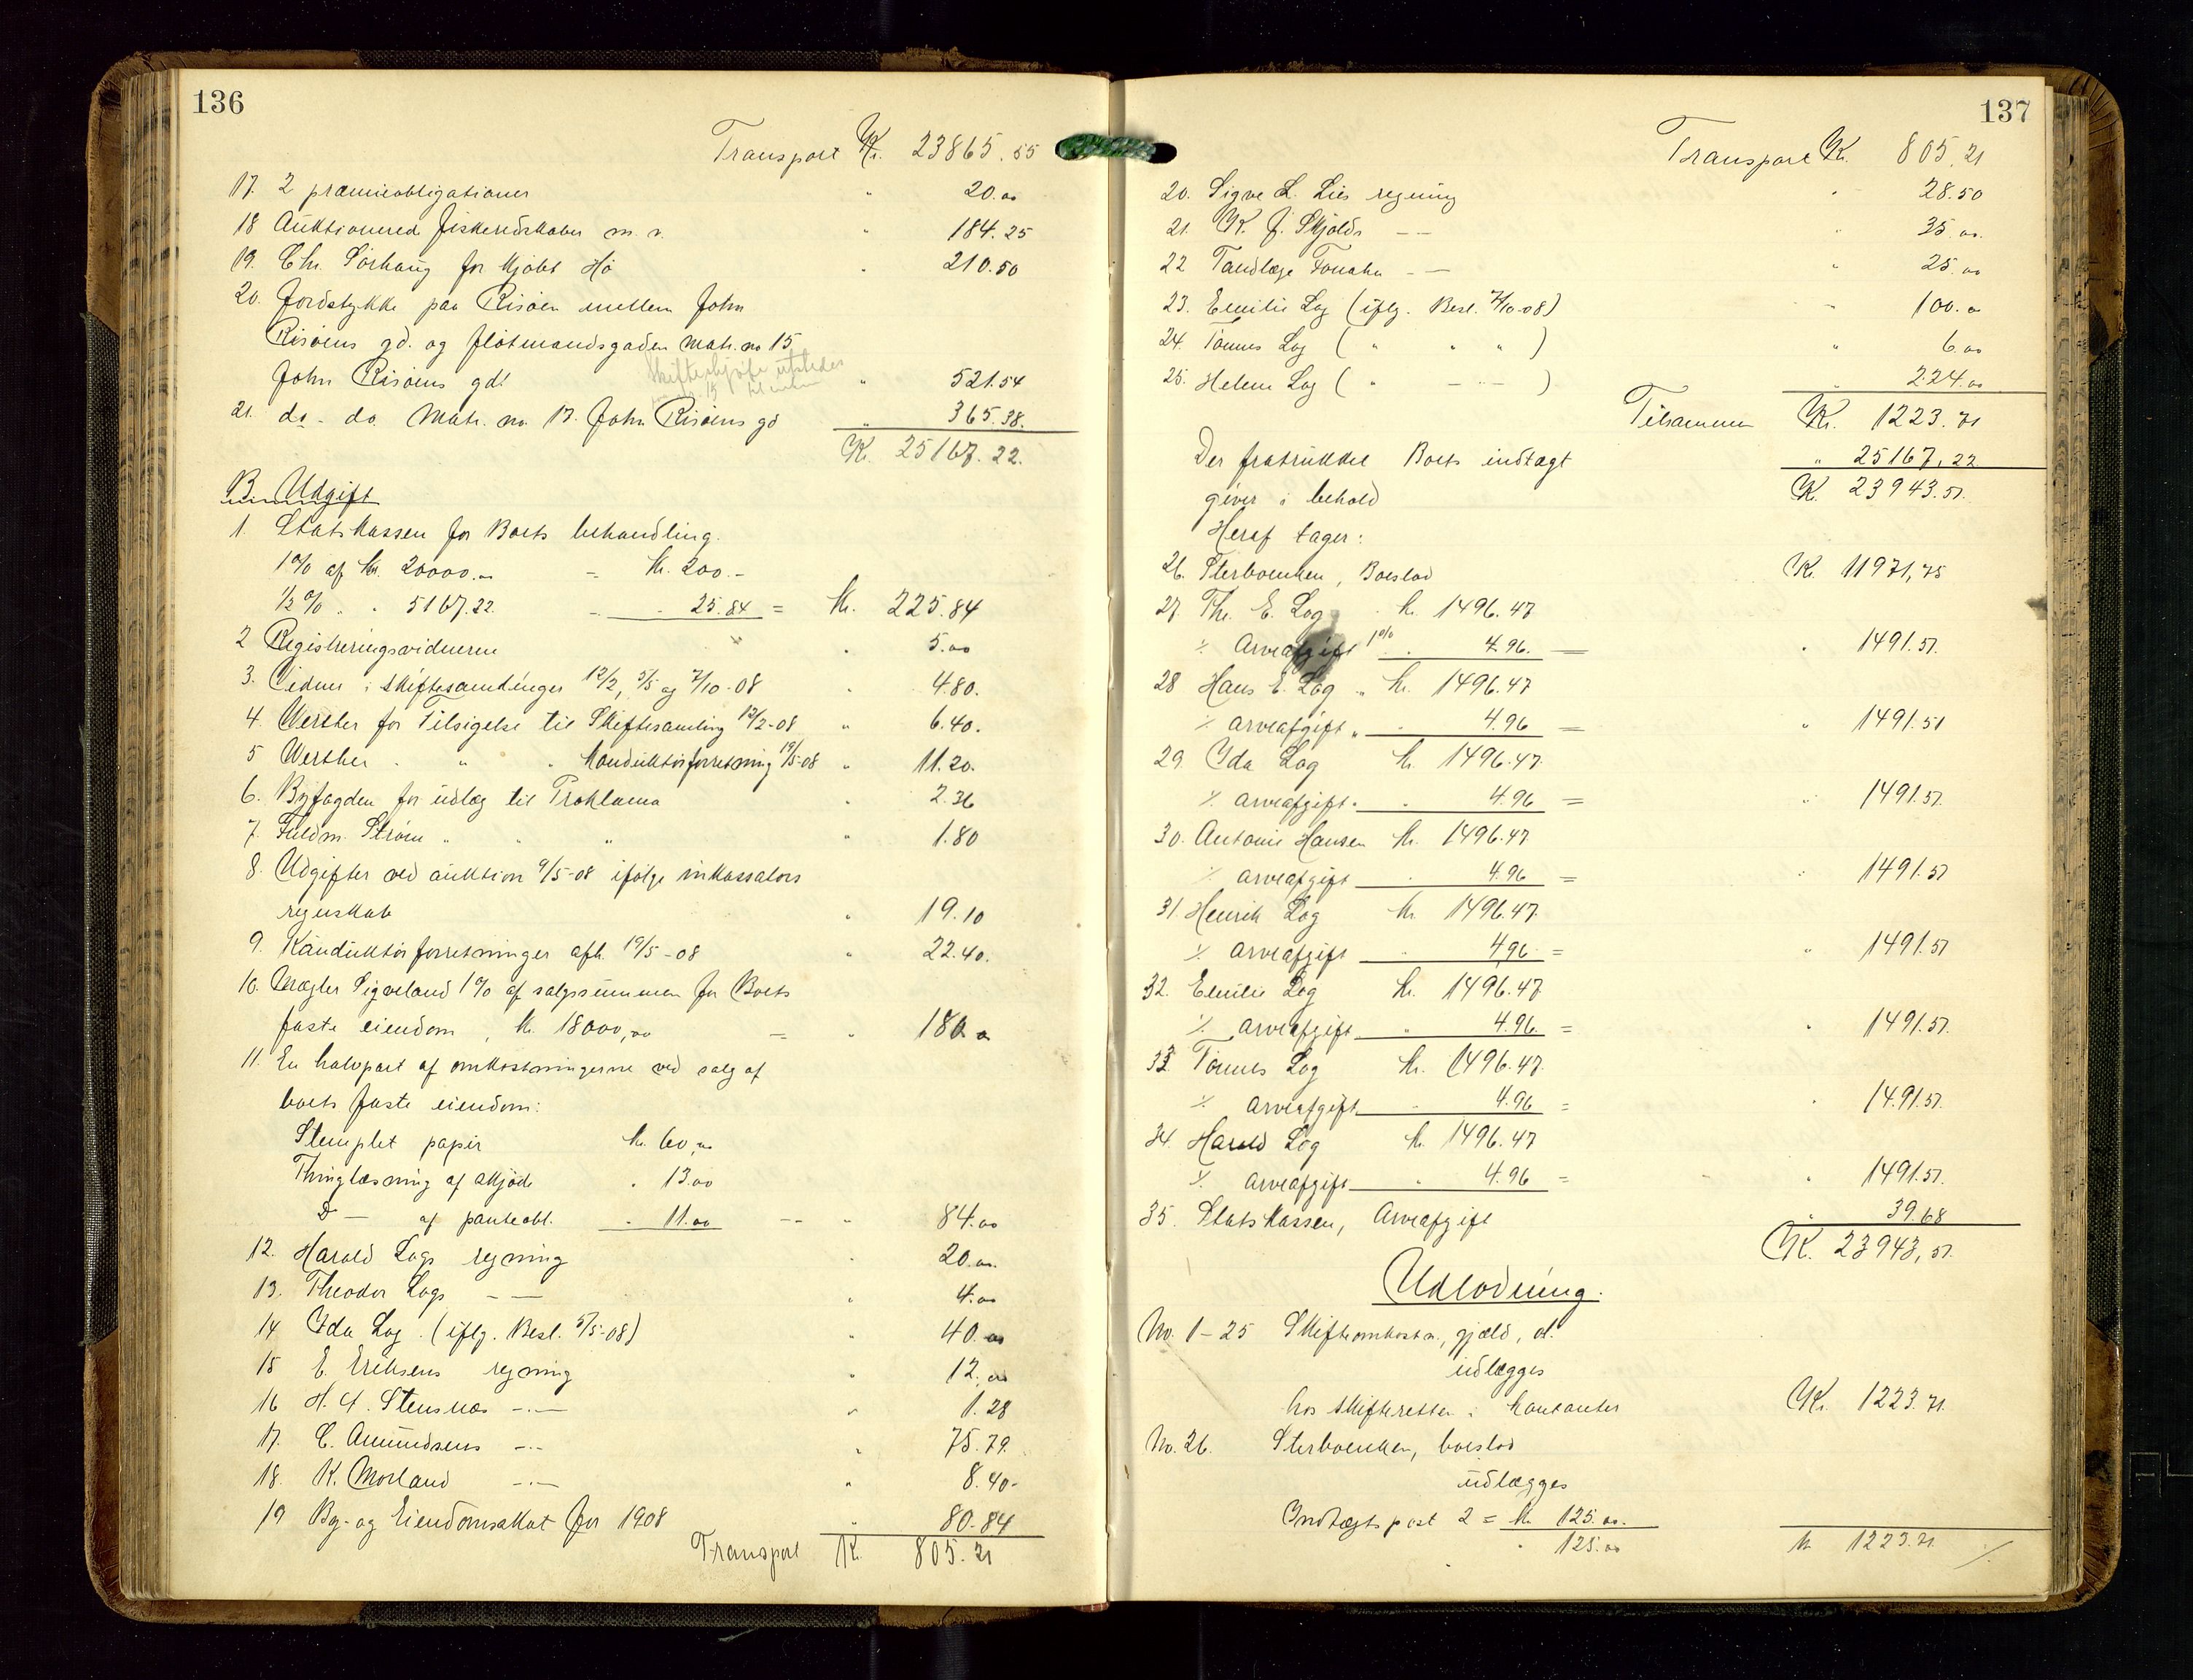 136
Transport Kr. 23865.55
17. 2 præmieobligationer " 20.00
18 Auktionered fiskeredskaber m. v. " 184.25
19. Chr. Sørhaug for kjøbt Hø " 210.50
20. Jordstykke paa Risøen mellem John
Risøens gd. og Flotmandsgaden Matr. no 15
John Risøens gd. " 521.54
Skifteskjøte utstedes
15
21. do - do. Matr. no. 17. John Risøens gd " 365.38.
Kr. 25167.22.
B. Udgift
1. Statskassen for Boets behandling.
1% af Kr. 20000.00 = Kr. 200.-
1/2% " " 5167.22. - " 25.84 = Kr. 225.84
2 Registreringsvidnerne " " 5.00
3. Vidner i skiftesamlinger 12/2, 5/5 og 7/10-08 " 4.80.
4. Werther for Tilsigelse til Skiftesamling 12/2-08 " 6.40.
5 Werther " " " Konduktørforretning 19/5-08 " 11.20.
6. Byfogden for udlæg til Proklama " 2.36
7. Fuldm. Strøm " " " " 1.80
8. Udgifter ved auktion 9/5-08 ifølge inkassators
regnskab " 19.10
9. Konduktørforretninger afh. 19/5-08 " 22.40.
10. Mægler Sigveland 1% af salgssummen for Boets
faste eiendom, Kr. 18000,00 = " 180.00
11. En halvpart af omkostningerne ved salg af
boets faste eiendom:
Stemplet papir Kr. 60,00
Thinglæsning af skjøde " 13.00
Do — af panteobl. " 11.00 -- " 84.00
12. Harald Logs regning " 20.00.
13. Theodor Logs — — " 4.00
14 Ida Log. (iflg. Besl. 5/5-08) " 40.00
15 E. Eriksens regning " 12.00
16 H. A. Stensnæs -.- " 1.28
17. C. Amundsens -.- " 75.79.
18. K. Morland -.- " 8.40-
19 By- og Eiendomsskat for 1908 " 80.84
Transport Kr. 805.21
137
Transport Kr. 805.21
20. Sigve L. Lies regning " 28.50
21. K. J. Skjolds — — " 35.00.
22 Tandlæge Fonahn - — " 25.00
23. Emilie Log (iflg. Besl. 7/10-08) " 100.00
24. Tønnes Log ( " " " ) " 6.00
25. Helene Log ( " — " — ) " 224.00
Tilsammen Kr. 1223.71
Der fratrukket Boets indtægt " 25167,22
giver i behold Kr. 23943.51.
Heraf tager:
26. Sterboenken, Boeslod Kr. 11971,75
27. Th. E. Log " Kr. 1496.47
% Arveafgift 1% " 4.96. — " 1491.51.
28 Hans E. Log " Kr. 1496.47
% arveafgift " " 4.96 = " 1491.51
29. Ida Log Kr. 1496.47.
% arveafgift. " 4.96 = " 1491.51.
30. Antonie Hansen Kr. 1496.47
% arveafgift " 4.96 = " 1491.51
31. Henrik Log Kr. 1496.47.
% arveafgift " 4,96 = " 1491.51
32. Emilie Log Kr. 1496.47
% arveafgift " 4.96 = " 1491.51.
33. Tønnes Log Kr. 1496.47.
% arveafgift " 4.96 = " 1491.51.
34. Harald Log Kr. 1496.47
% arveafgift " 4.96 = " 1491.51.
35. Statskassen, Arveafgift " 39.68
Kr. 23943,51.
Udlodning.
No. 1-25 Skifteomkostn., gjæld, ol.
udlægges
hos skifteretten i kontanter Kr. 1223.71.
No. 26. Sterboenken, boeslod
udlægges
Indtægtspost 2 = Kr. 125.00.
" 125.00 Kr 1223.71. /